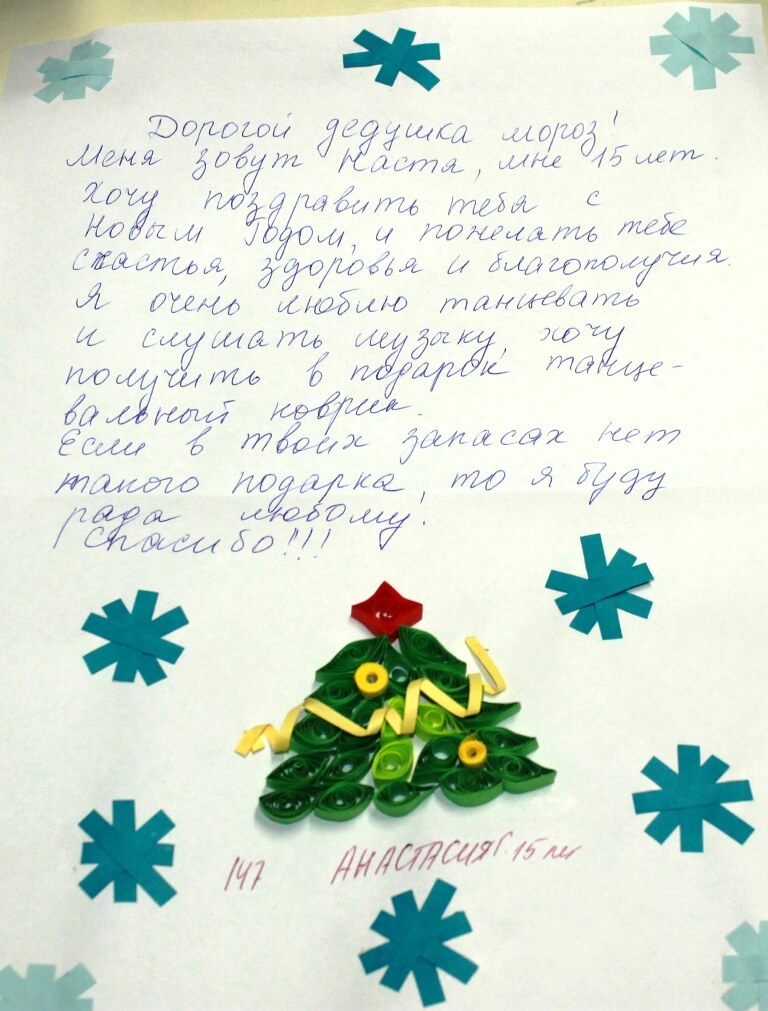 Дорогой дедушка мороз!
Меня зовут Настя, мне 15 лет.
Хочу поздравить тебя с
Новым Годом, и пожелать тебе
счастья, здоровья и благополучия.
Я очень люблю танцевать
и слушать музыку, хочу
получить в подарок танце-
вальный коврик.
Если в твоих запасах нет
такого подарка, то я буду
рада любому.
Спасибо!!!
147 АНАСТАСИЯ Г. 15 лет